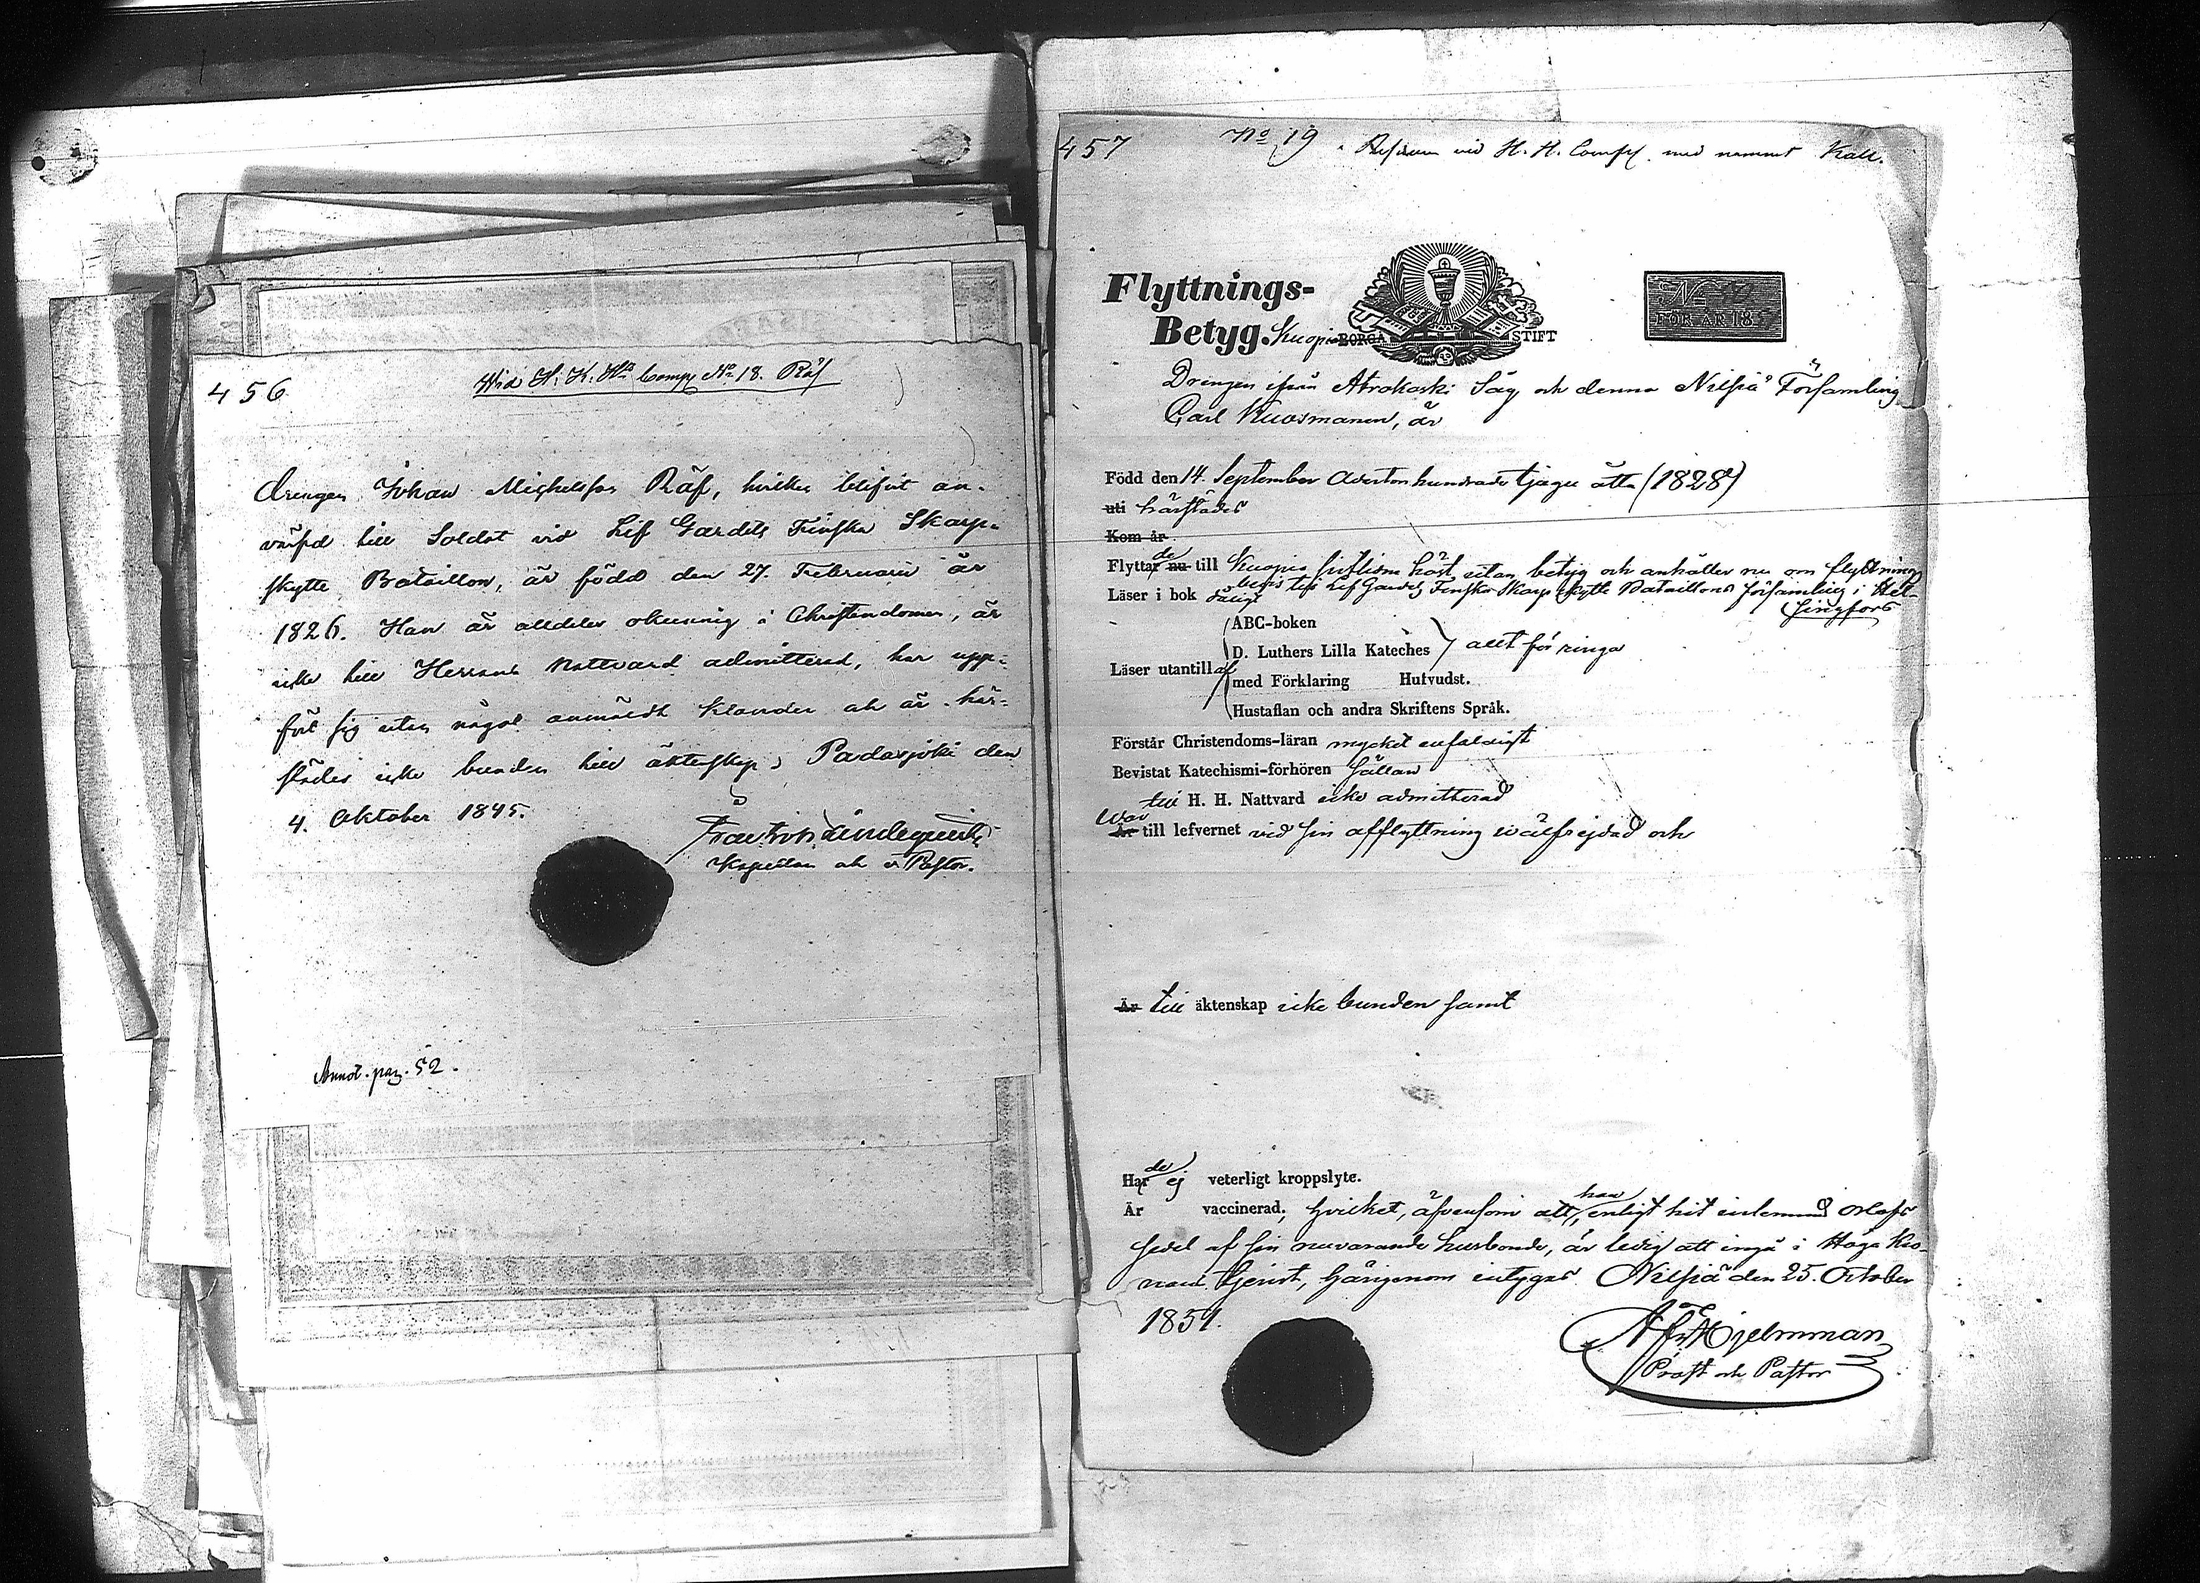 456
Wid H. K. H:s Comp. No 18. Räf
Drengen Johan Michelsson Räf, hvilken blifvit an-
värfvd till Soldat vid Lif Gardets Finska Skarp-
skytte Bataillon, är född den 27. Februarii år
1826. Han är alldeles okunnig i Christendomen, är
icke till Herrans Nattvard admitterad, har upp-
fört sig utan något anmäldt klander och är här-
städes icke bunden till äktenskap; Padasjoki den
4. Oktober 1845.
Lindequist
Kapellan och v. Pastor.
Annot. pag. 52.
457
No 19
vid H. H. Comp. med namnet Kall.
Flyttnings-
Betyg. Kuopio BORGÅ STIFT
No 19
FÖR ÅR 185
Drengen ifrån Atrokoski Såg och denna Nilsiä Församling
Carl Kuosmanen, är
Född den 14. September Adertonhundrade tjugu åtta (1828)
uti härstädes
Kom år
Flyttade nu till Kuopio sistlidne höst utan betyg och anhåller nu om flyttnings
betyg till Lif Gardets Finska Skarpskytte Bataillons församling i Hel-
singfors
Läser i bok dåligt
ABC-boken
D. Luthers Lilla Kateches
allt för ringa
Läser utantill af
med Förklaring Hufvudst.
Hustaflan och andra Skriftens Språk.
Förstår Christendoms-läran mycket enfaldigt
Bevistat Katechismi-förhören sällan
till H. H. Nattvard icke admitterad
War
Är till lefvernet vid sin afflyttning wälfrejdad och
Är till äktenskap icke bunden samt
Hade ej veterligt kroppslyte.
Är vaccinerad; hvilket, äfvensom att han, enligt hit inlemnad orlofs
sedel af sin nuvarande husbonde, är ledig att ingå i Höga Kro-
nans tjenst, härigenom intygas. Nilsiä den 25. October
1851.
Hjelmman
Prost och Pastor